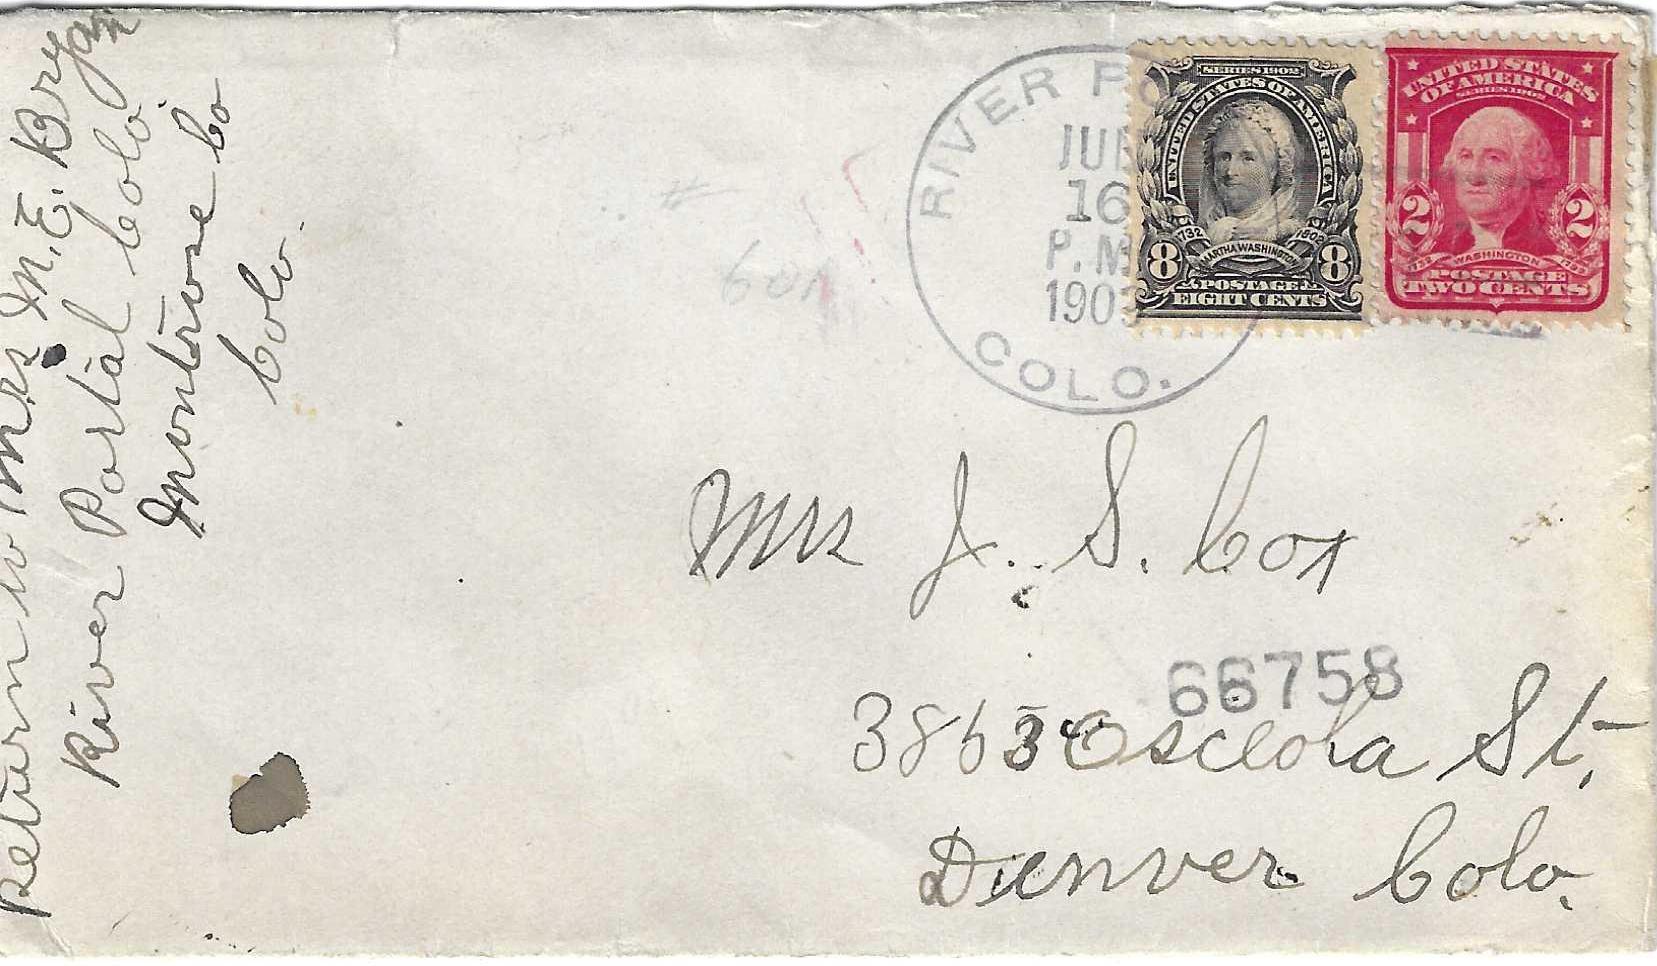 Return to Mrs M. E. Bryan
River Portal Colo.
Montrose Co
Colo.
RIVER PO
JUN
16
P.M.
190
COLO.
SERIES 1902
UNITED STATES OF AMERICA
1732
MARTHA WASHINGTON
1802
8
8
POSTAGE
EIGHT CENTS
UNITED STATES
OF AMERICA
SERIES 1902
2
2
1732
WASHINGTON
1799
POSTAGE
TWO CENTS
Mrs J. S. Cox
66758
Osceola St.
Denver Colo.